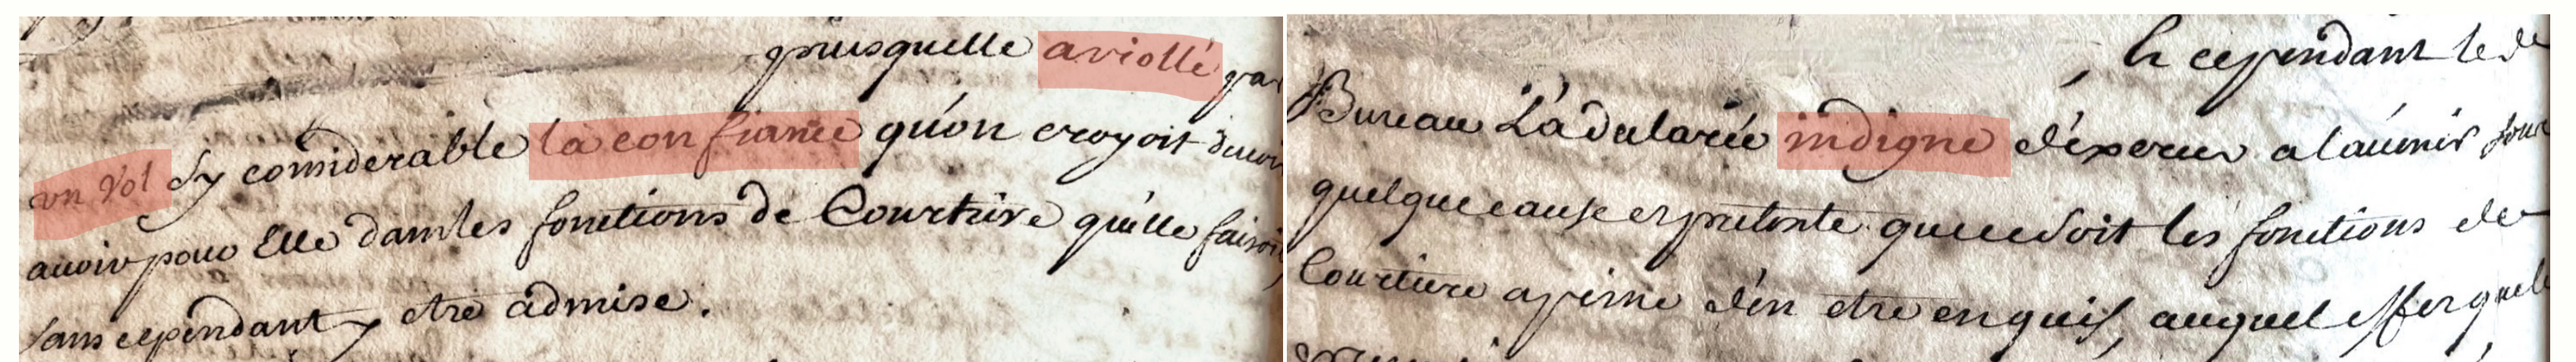 puisquelle a viollé par
un Vol sy considerable la confiance qu'on croyoit devoir
avoir pour Elle dans les fonctions de Courtiere qu'elle faisoit
sans cependant y etre admise.
, he cependant le d
Bureau L'a declarée indigne d'exercer a l'avenir sous
quelque cause et pretexte que ce soit les fonctions de
Courtiere a peine d'en etre en quis, auquel effet quelle